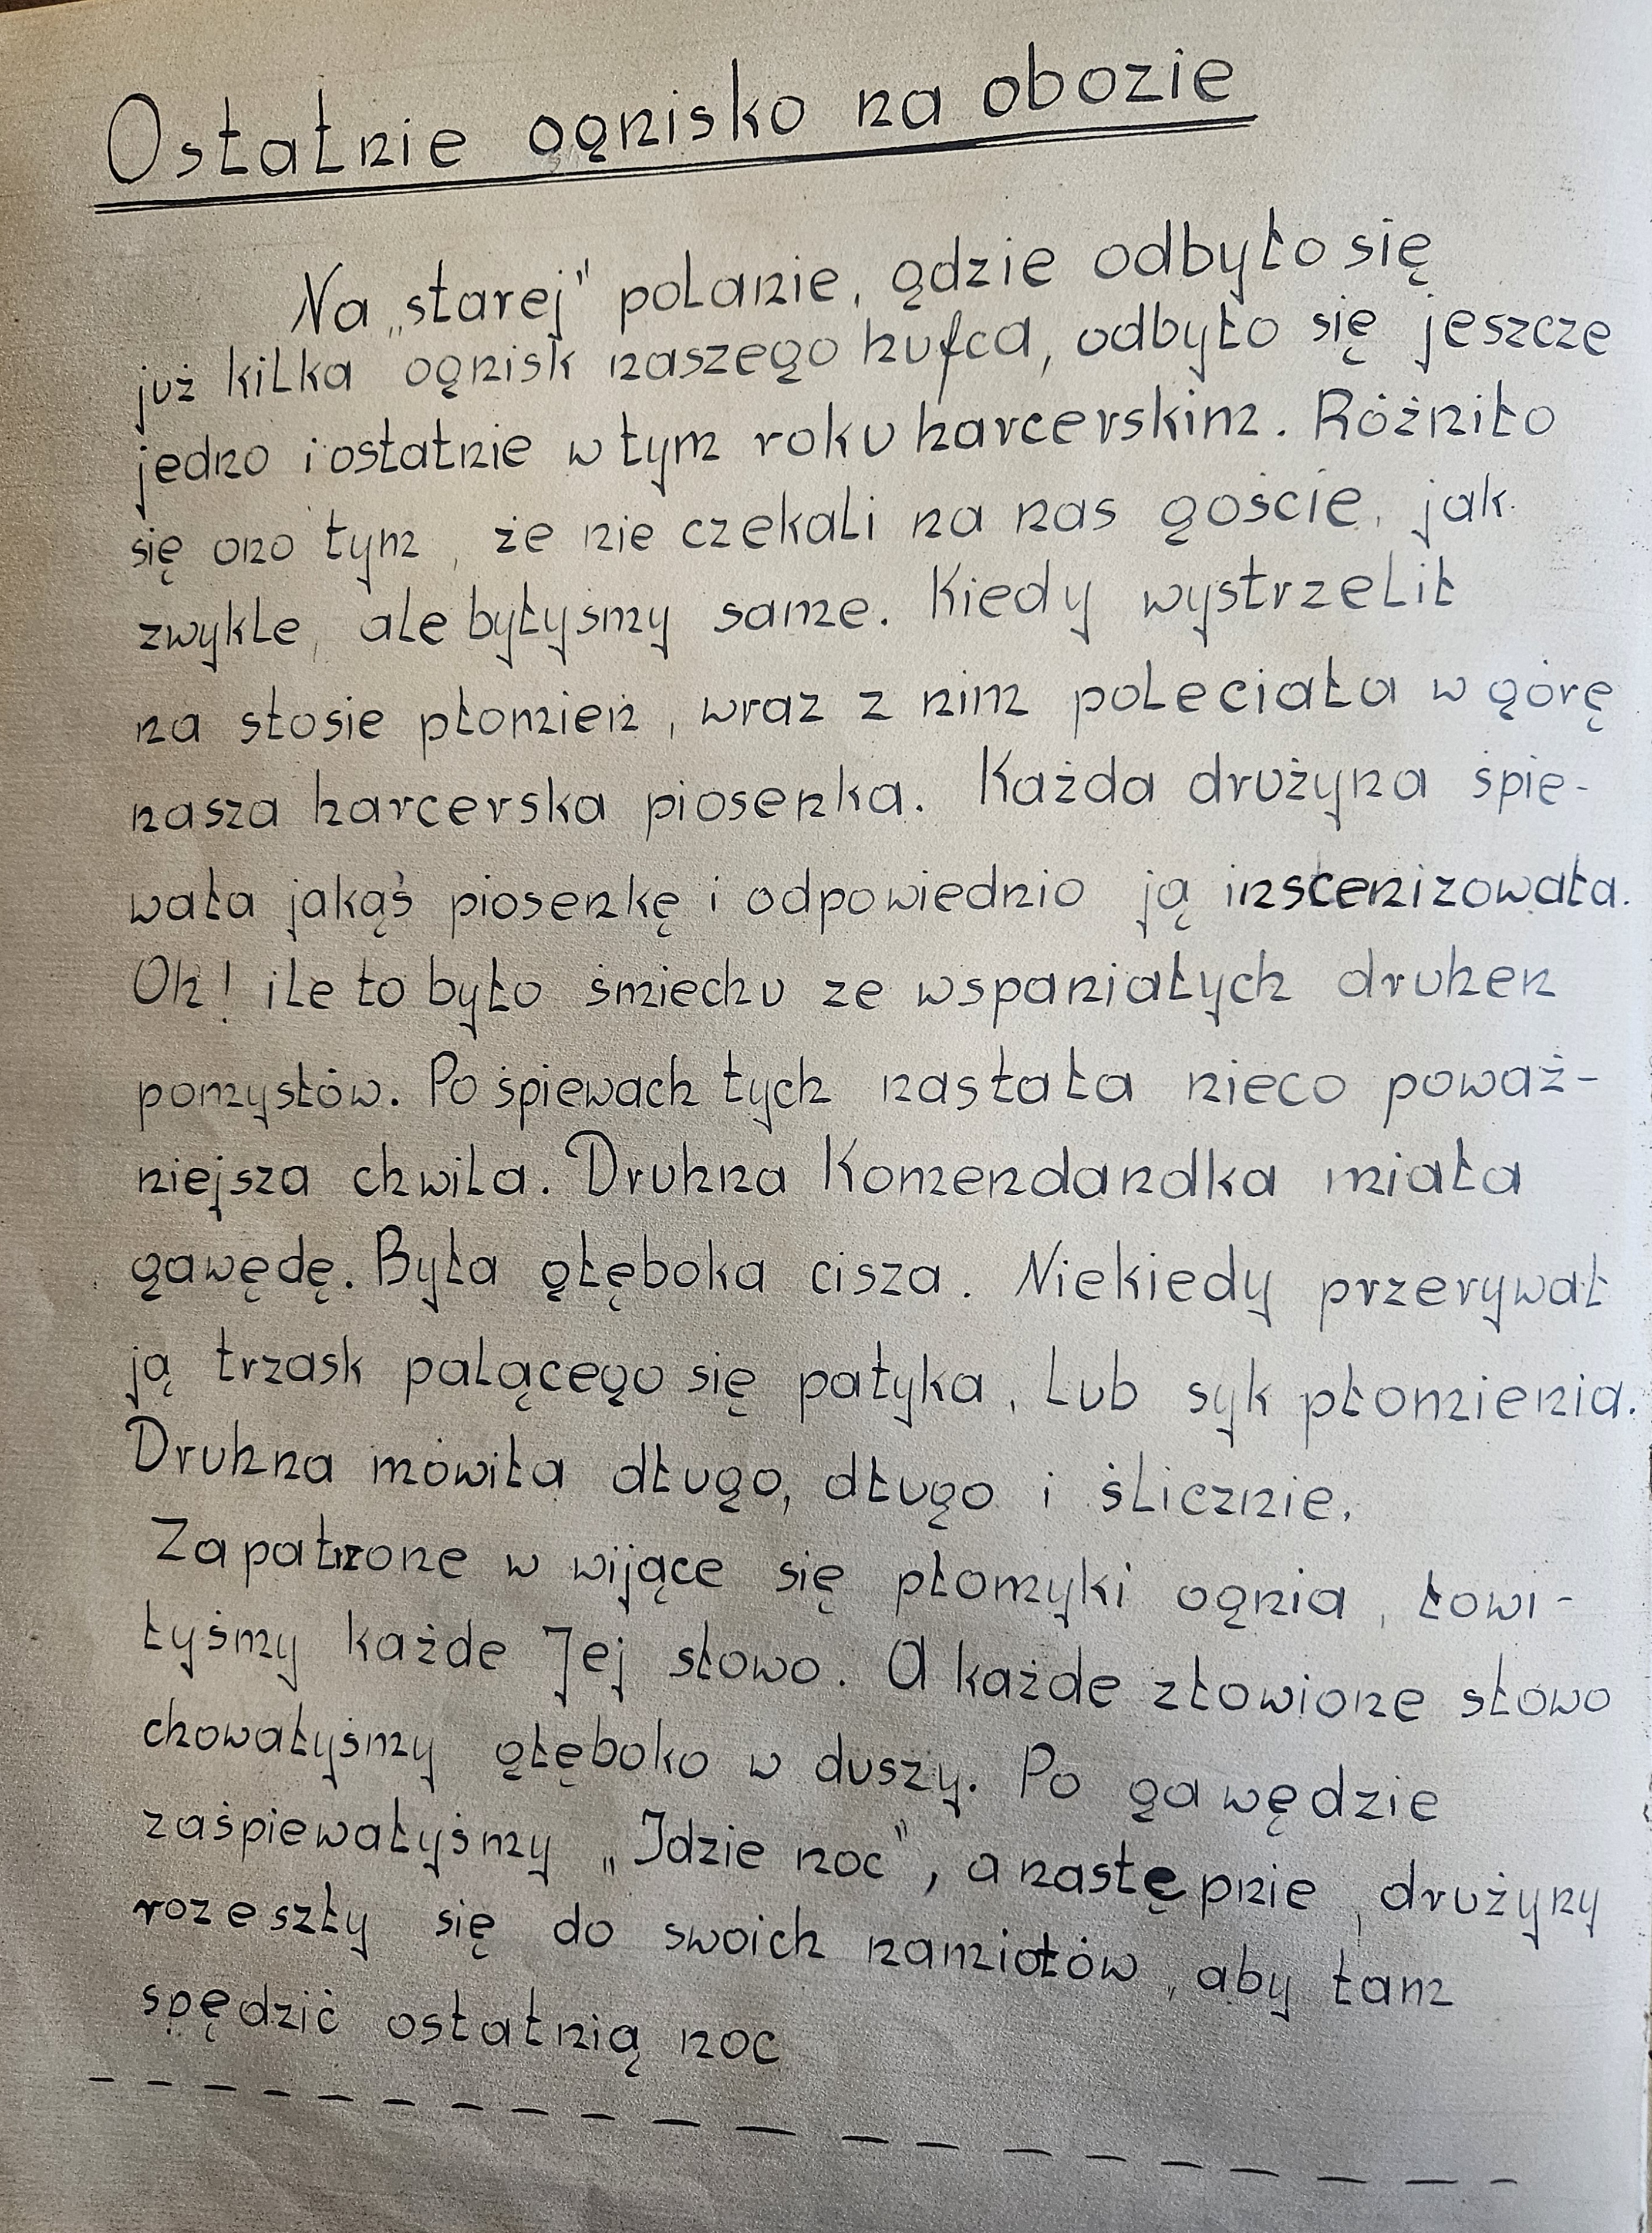 Ostatnie ognisko na obozie
Na „starej" polanie, gdzie odbyło się
już kilka ognisk naszego hufca, odbyło się jeszcze
jedno i ostatnie w tym roku harcerskim. Różniło
się ono tym, że nie czekali na nas goście, jak
zwykle, ale byłyśmy same. Kiedy wystrzelił
na stosie płomień, wraz z nim poleciała w górę
nasza harcerska piosenka. Każda drużyna śpie-
wała jakąś piosenkę i odpowiednio ją inscenizowała.
Oh! ile to było śmiechu ze wspaniałych druhen
pomysłów. Po śpiewach tych nastała nieco poważ-
niejsza chwila. Druhna Komendandka miała
gawędę. Była głęboka cisza. Niekiedy przerywał
ją trzask palącego się patyka, lub syk płomienia.
Druhna mówiła długo, długo i ślicznie.
Zapatrzone w wijące się płomyki ognia, łowi-
łyśmy każde Jej słowo. A każde złowione słowo
chowałyśmy głęboko w duszy. Po gawędzie
zaśpiewałyśmy „Idzie noc", a następnie, drużyny
rozeszły się do swoich namiotów, aby tam
spędzić ostatnią noc